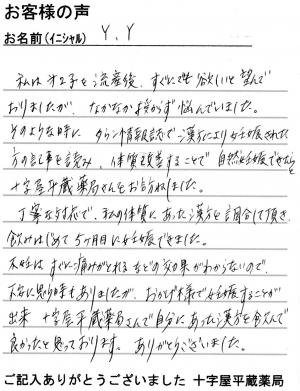 お客様の声
お名前(イニシャル) Y.Y
私は第2子を流産後、すぐにでも欲しいと望んで
おりましたが、なかなか授からず悩んでいました。
そのような時に、タウン情報誌で漢方により妊娠された
方の記事を読み、体質改善することで自然妊娠できたらと
十字屋平蔵薬局さんをお訪ねしました。
丁寧な対応で、私の体質にあった漢方を調合して頂き、
飲みはじめて5ヶ月目に妊娠できました。
不妊はすぐに痛みがとれるなどの効果がわからないので、
不安に思う時もありましたが、おかげ様で妊娠することが
出来、十字屋平蔵薬局さんで自分にあった漢方を飲んで
良かったと思っております。ありがとうございました。
ご記入ありがとうございました 十字屋平蔵薬局